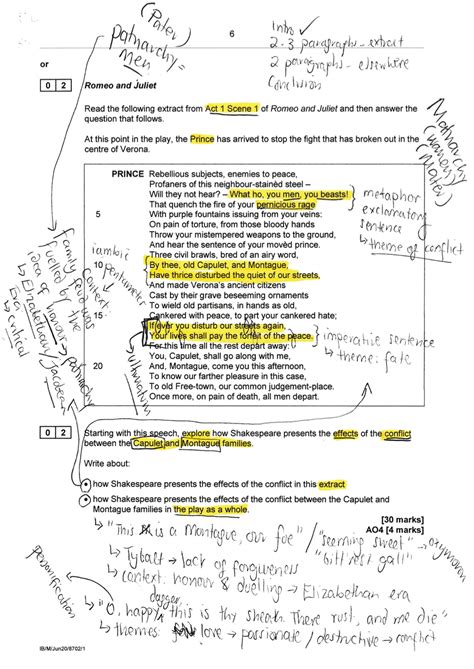 (Pater)
patriarchy =
men
6
Intro ✓
2-3 paragraphs - extract
2 paragraphs - elsewhere
Conclusion
or
0 2 Romeo and Juliet
Read the following extract from Act 1 Scene 1 of Romeo and Juliet and then answer the
question that follows.
At this point in the play, the Prince has arrived to stop the fight that has broken out in the
centre of Verona.
Matriarchy
(Mater)
PRINCE Rebellious subjects, enemies to peace,
Profaners of this neighbour-stainèd steel –
Will they not hear? – What ho, you men, you beasts!
That quench the fire of your pernicious rage
5 With purple fountains issuing from your veins:
On pain of torture, from those bloody hands
Throw your mistempered weapons to the ground,
And hear the sentence of your movèd prince.
Three civil brawls, bred of an airy word,
10 By thee, old Capulet, and Montague,
Have thrice disturbed the quiet of our streets,
And made Verona's ancient citizens
Cast by their grave beseeming ornaments
To wield old partisans, in hands as old,
15 Cankered with peace, to part your cankered hate;
If ever you disturb our streets again,
Your lives shall pay the forfeit of the peace.
For this time all the rest depart away:
You, Capulet, shall go along with me,
20 And, Montague, come you this afternoon,
To know our farther pleasure in this case,
To old Free-town, our common judgement-place.
Once more, on pain of death, all men depart.
metaphor
exclamatory
sentence
theme of conflict
iambic
pentameter
family feud
fuelled by the
idea of honour
Elizabethan/Jacobean
Era
critical
context
patriarchy
ultimatum
imperative sentence
theme: fate
0 2 Starting with this speech, explore how Shakespeare presents the effects of the conflict
between the Capulet and Montague families.
Write about:
• how Shakespeare presents the effects of the conflict in this extract
• how Shakespeare presents the effects of the conflict between the Capulet and
Montague families in the play as a whole.
[30 marks]
AO4 [4 marks]
"This is a Montague, our foe" / "seeming sweet" → oxymoron
"bitt'rest gall"
Tybalt → lack of forgiveness
context: honour & duelling → Elizabethan era
personification
dagger,
"O, happy this is thy sheath. There rust, and me die"
themes: love → passionate / destructive → conflict
IB/M/Jun20/8702/1